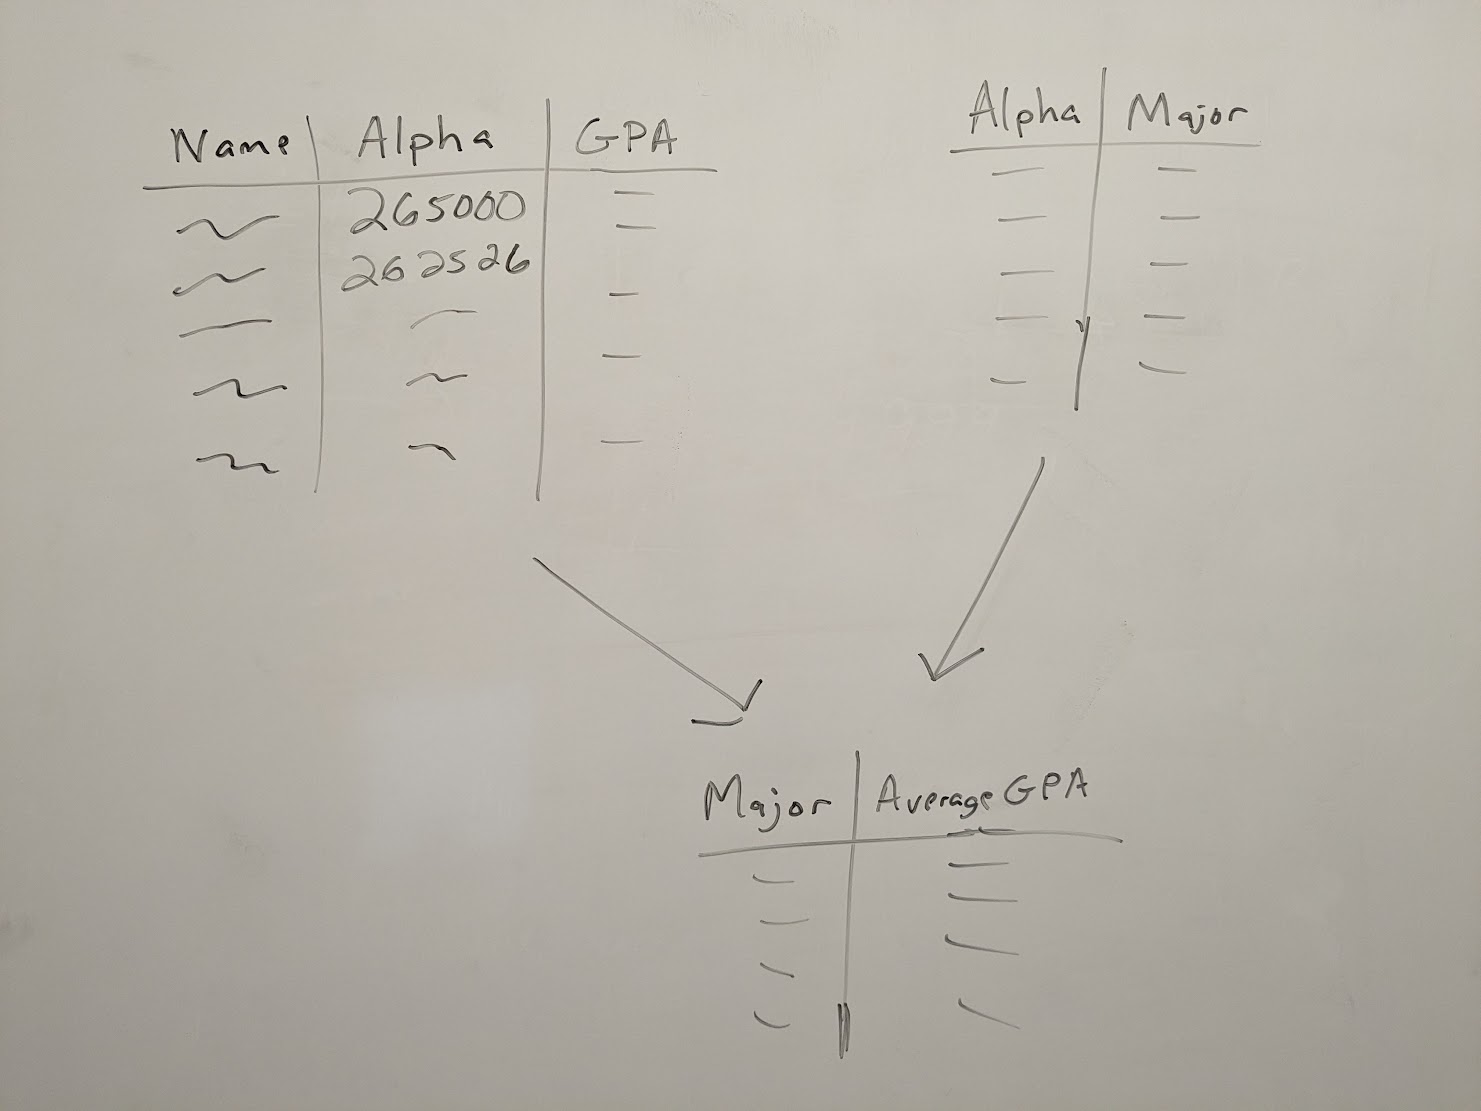 Name Alpha GPA
265000
262526
Alpha Major
Major Average GPA